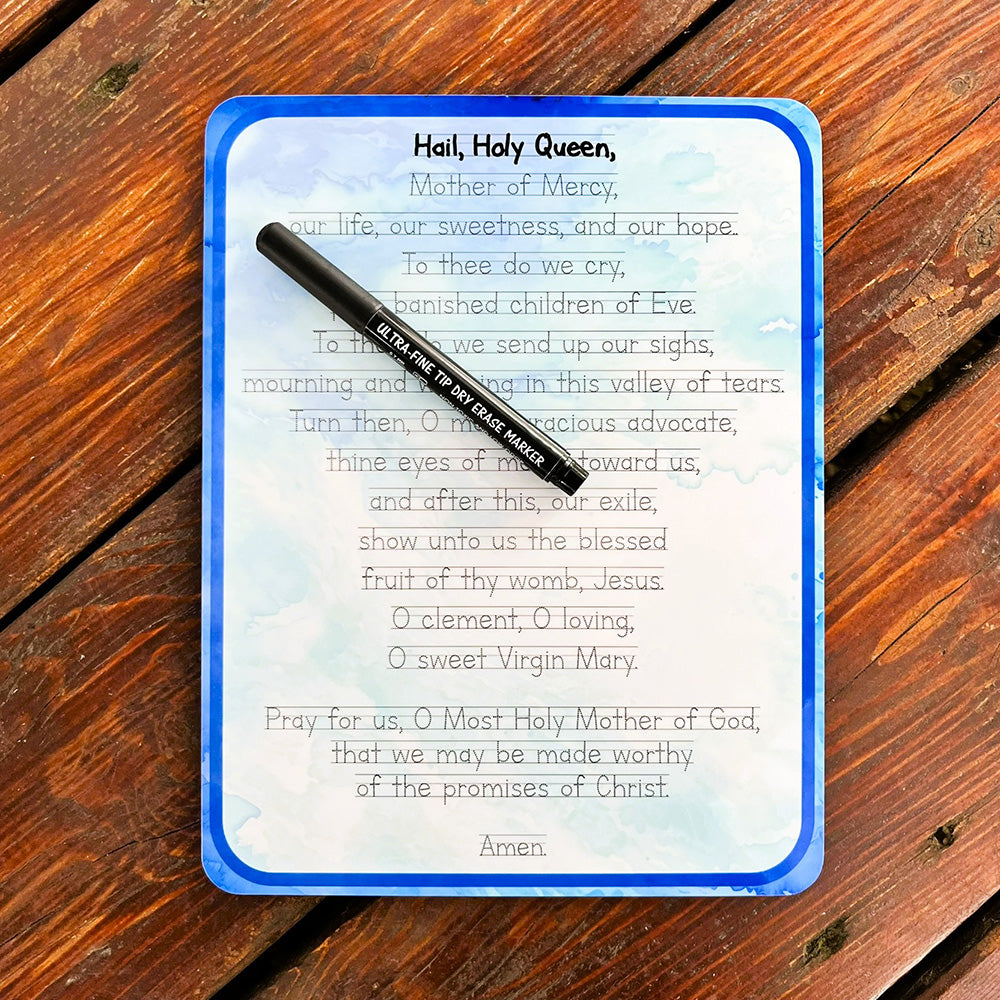 Hail, Holy Queen,
Mother of Mercy,
our life, our sweetness, and our hope.
To thee do we cry,
banished children of Eve.
To we send up our sighs,
mourning and in this valley of tears.
Turn then, O gracious advocate,
thine eyes of toward us,
and after this, our exile,
show unto us the blessed
fruit of thy womb, Jesus.
O clement, O loving,
O sweet Virgin Mary.
Pray for us, O Most Holy Mother of God,
that we may be made worthy
of the promises of Christ.
Amen.
ULTRA-FINE TIP DRY ERASE MARKER